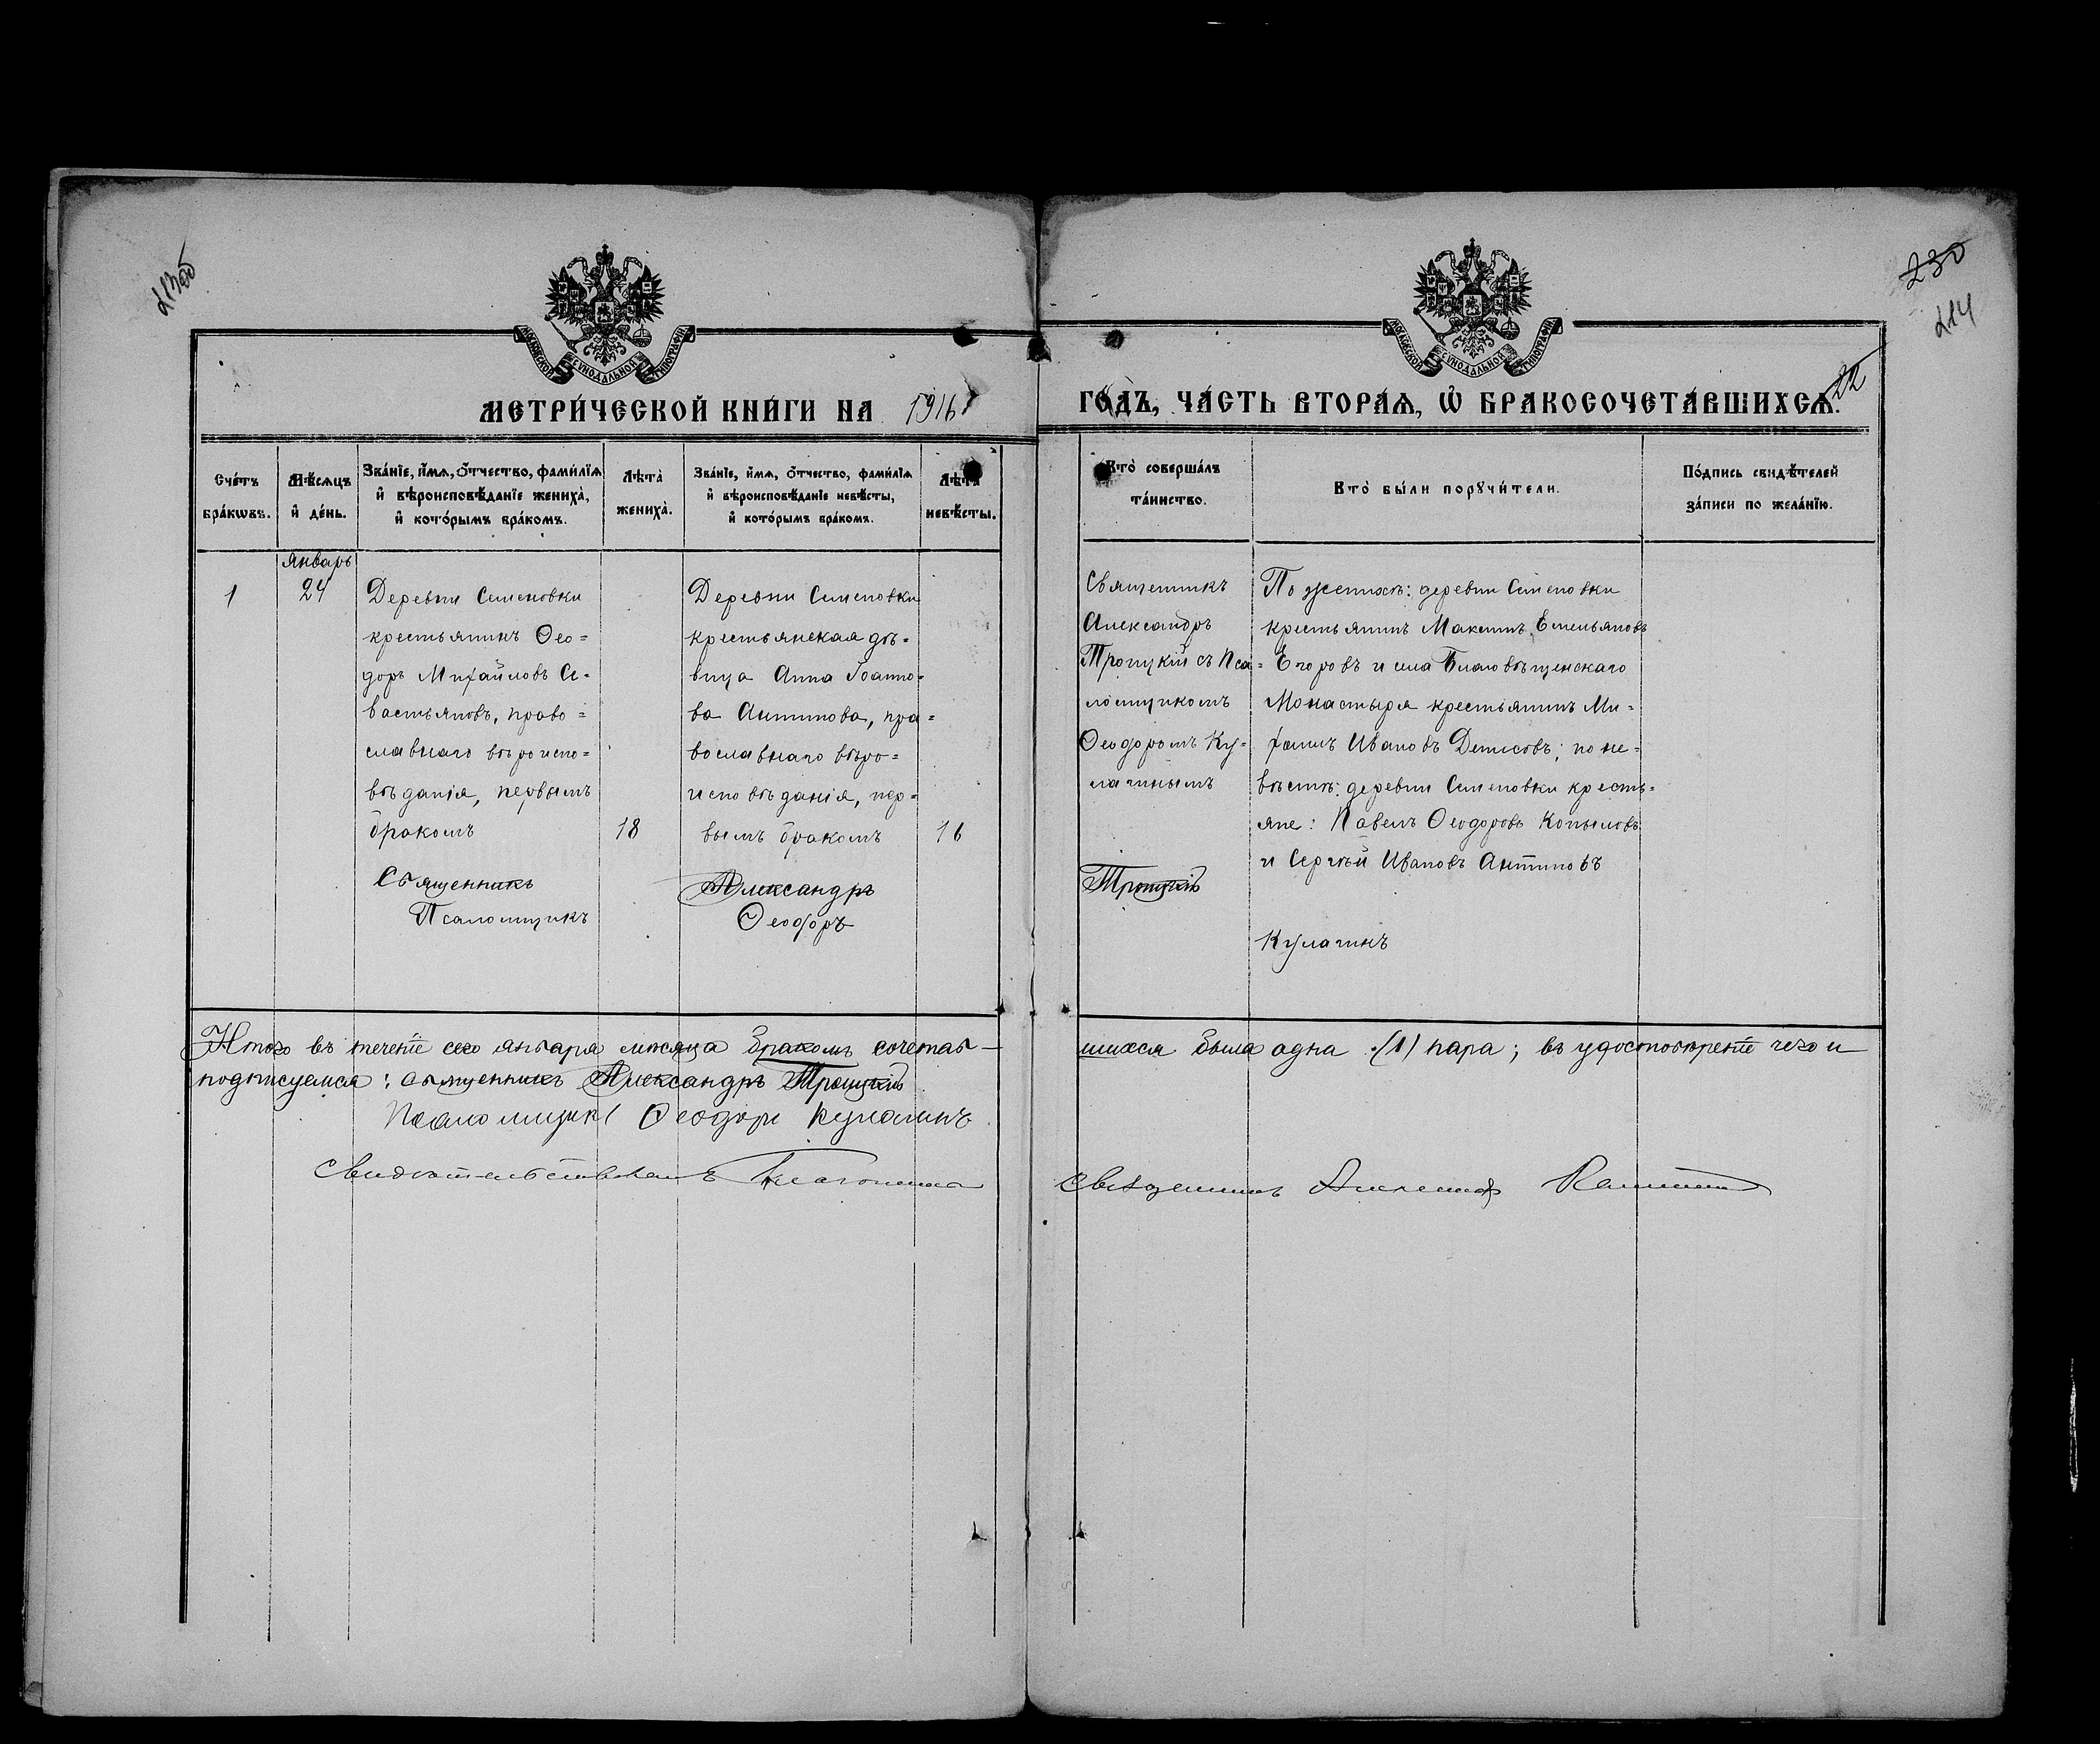 213об
230
214
22
МОСКОВСКОЙ СѴНОДАЛЬНОЙ ТИПОГРАФІИ
МОСКОВСКОЙ СѴНОДАЛЬНОЙ ТИПОГРАФІИ
МЕТРИ́ЧЕСКОЙ КНИ́ГИ НА 1916
ГО́ДЪ, ЧА́СТЬ ВТОРА́Ѧ, Ѡ҆ БРАКОСОЧЕТА́ВШИХСѦ.
Сче́тъ
бра́кѡвъ.
Мѣ́сѧцъ
и҆ де́нь.
Зва́нїе, и҆́мѧ, ѻ҆́тчество, фами́лїѧ
и҆ вѣроисповѣ́данїе жениха̀,
и҆ кото́рымъ бра́комъ.
Лѣ́та̀
жениха̀.
Зва́нїе, и҆́мѧ, ѻ҆́тчество, фами́лїѧ
и҆ вѣроисповѣ́данїе невѣ́сты,
и҆ кото́рымъ бра́комъ.
Лѣ́та̀
невѣ́сты.
Кто̀ соверша́лъ
та́инство.
Кто̀ бы́ли порꙋчи́тели.
По́дпись свидѣ́телей
за́писи по жела́нїю.
Январь
1
24
Деревни Семеновки
крестьянинъ Ѳео=
доръ Михайловъ Се=
вастьяновъ, право=
славнаго вѣроиспо=
вѣданія, первымъ
бракомъ
18
Деревни Семеновки
крестьянская дѣ=
вица Анна Іоанно=
ва Антипова, пра=
вославнаго вѣро=
исповѣданія, пер=
вымъ бракомъ
16
Священникъ
Александръ
Троицкій съ Пса=
ломщикомъ
Ѳеодоромъ Ку=
лагинымъ
По женихѣ: деревни Семеновки
крестьянинъ Максимъ Емельяновъ
Егоровъ и села Благовѣщенскаго
Монастыря крестьянинъ Ми=
хаилъ Ивановъ Денисовъ; по не=
вѣстѣ: деревни Семеновки кресть=
яне: Павелъ Ѳеодоровъ Копыловъ
и Сергѣй Ивановъ Антиповъ
Священникъ Александръ Троицкій
Псаломщикъ Ѳеодоръ Кулагинъ
Итого въ теченіе сего января мѣсяца бракомъ сочетав-
шихся была одна (1) пара; въ удостовѣреніе чего и
подписуемся: священникъ Александръ Троицкій
Псаломщикъ Ѳеодоръ Кулагинъ
Свидѣтельствовалъ
Священникъ Александръ